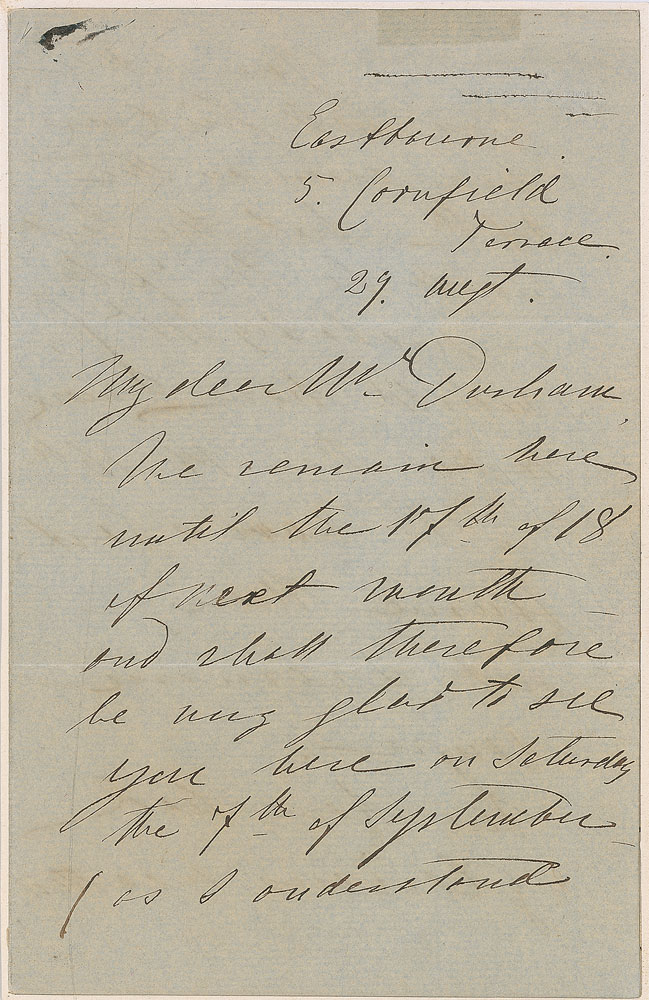 Eastbourne
5. Cornfield
Terrace.
29. Augt.
My dear Mr Durham,
We remain here
until the 17th of 18
of next month –
and shall therefore
be very glad to see
you here on Saturday
the 7th of September –
( as I understand